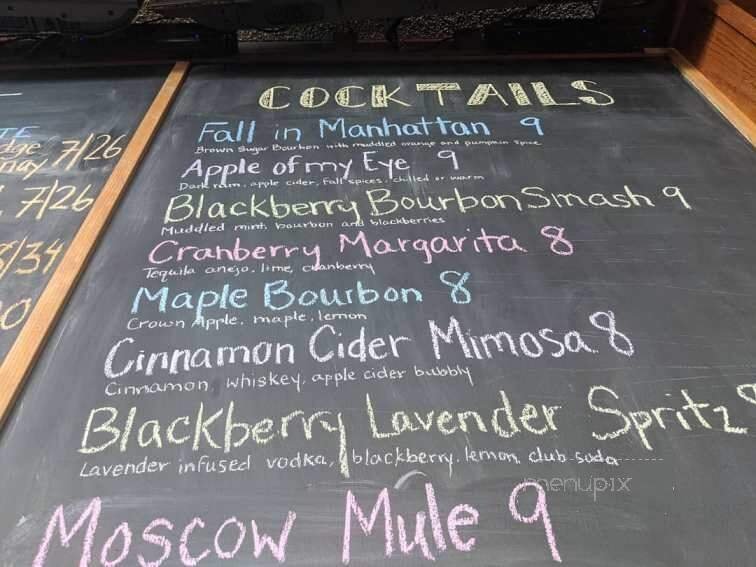 COCKTAILS
Fall in Manhattan 9
Brown Sugar Bourbon with muddled orange and pumpkin spice
Apple of my Eye 9
Dark rum, apple cider, Fall spices, chilled or warm
Blackberry Bourbon Smash 9
Muddled mint, bourbon and blackberries
Cranberry Margarita 8
Tequila anejo, lime, cranberry
Maple Bourbon 8
Crown Apple, maple, lemon
Cinnamon Cider Mimosa 8
Cinnamon, whiskey, apple cider bubbly
Blackberry Lavender Spritz
Lavender infused vodka, blackberry, lemon, club soda
Moscow Mule 9
7/26
7/26
/34
menupix